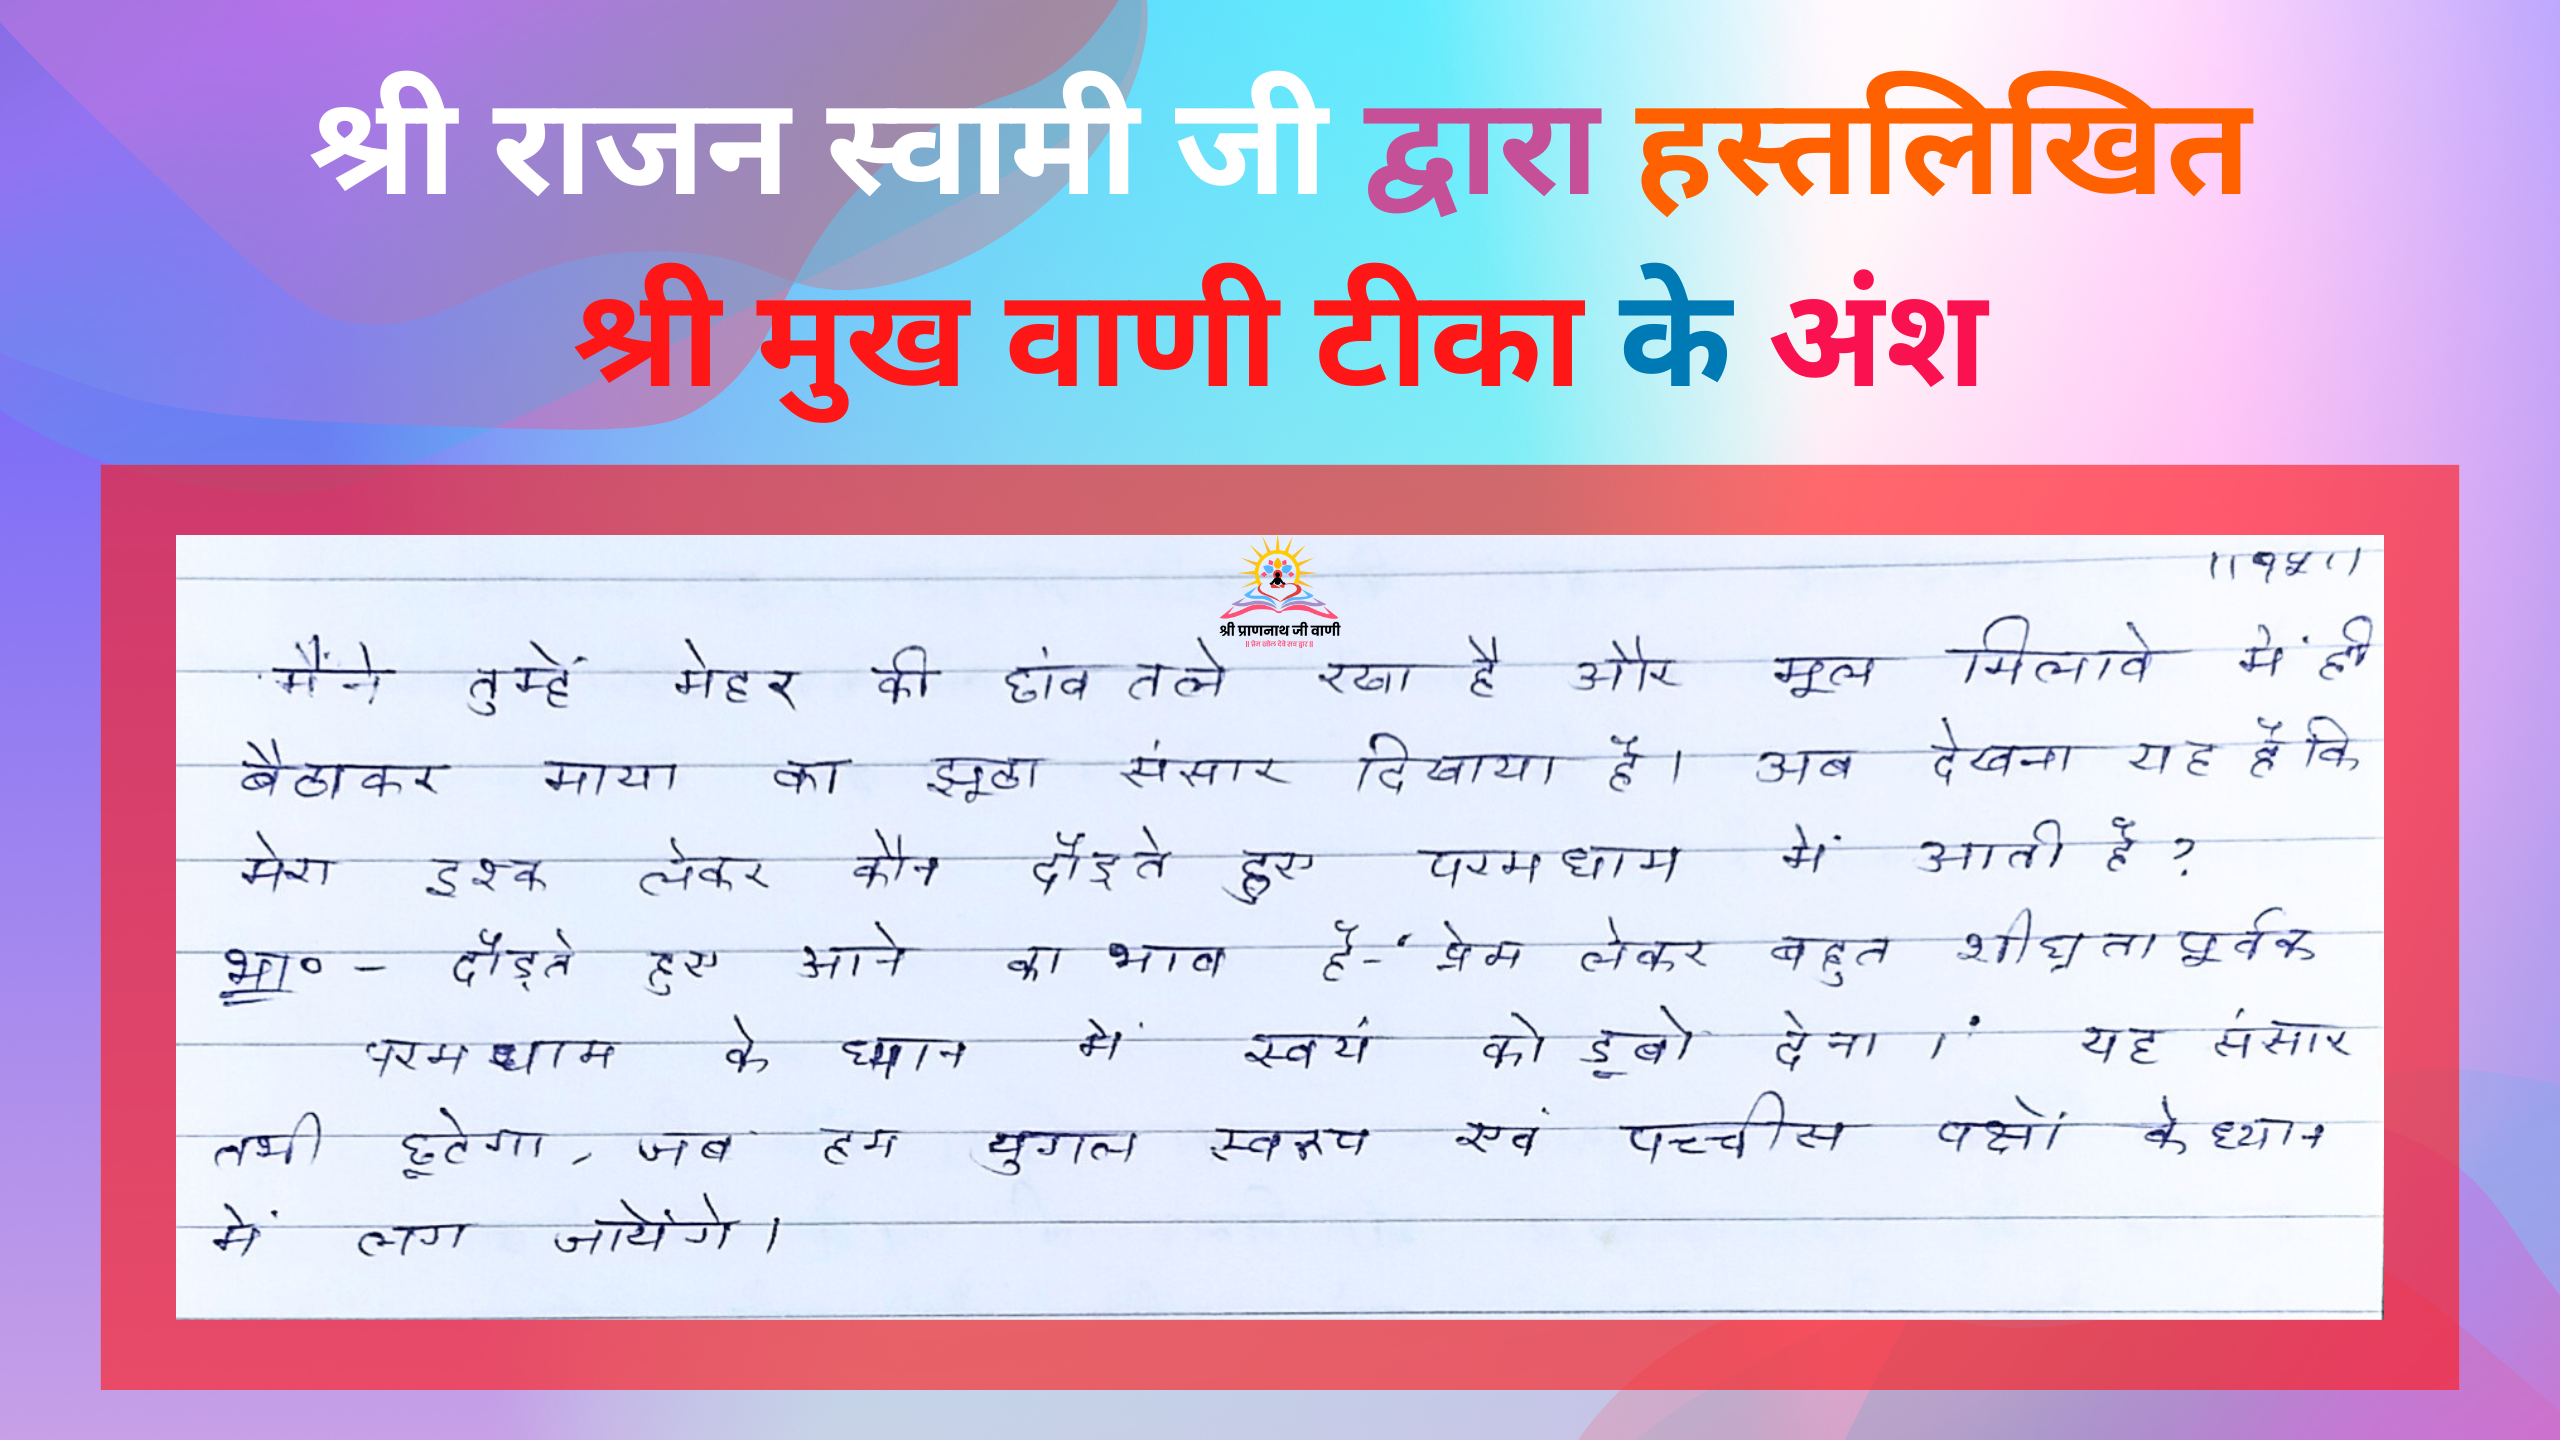 श्री राजन स्वामी जी द्वारा हस्तलिखित
श्री मुख वाणी टीका के अंश
श्री प्राणनाथ जी वाणी
॥ प्रेम खोल देवे सब द्वार ॥
॥१५॥
मैंने तुम्हें मेहर की छांव तले रखा है और मूल मिलावे में ही
बैठाकर माया का झूठा संसार दिखाया है। अब देखना यह है कि
मेरा इश्क लेकर कौन दौड़ते हुए परमधाम में आती है?
भा० - दौड़ते हुए आने का भाव है- प्रेम लेकर बहुत शीघ्रतापूर्वक
परमधाम के ध्यान में स्वयं को डूबो देना। यह संसार
तभी छूटेगा, जब हम युगल स्वरूप एवं पच्चीस पक्षों के ध्यान
में लग जायेंगे।